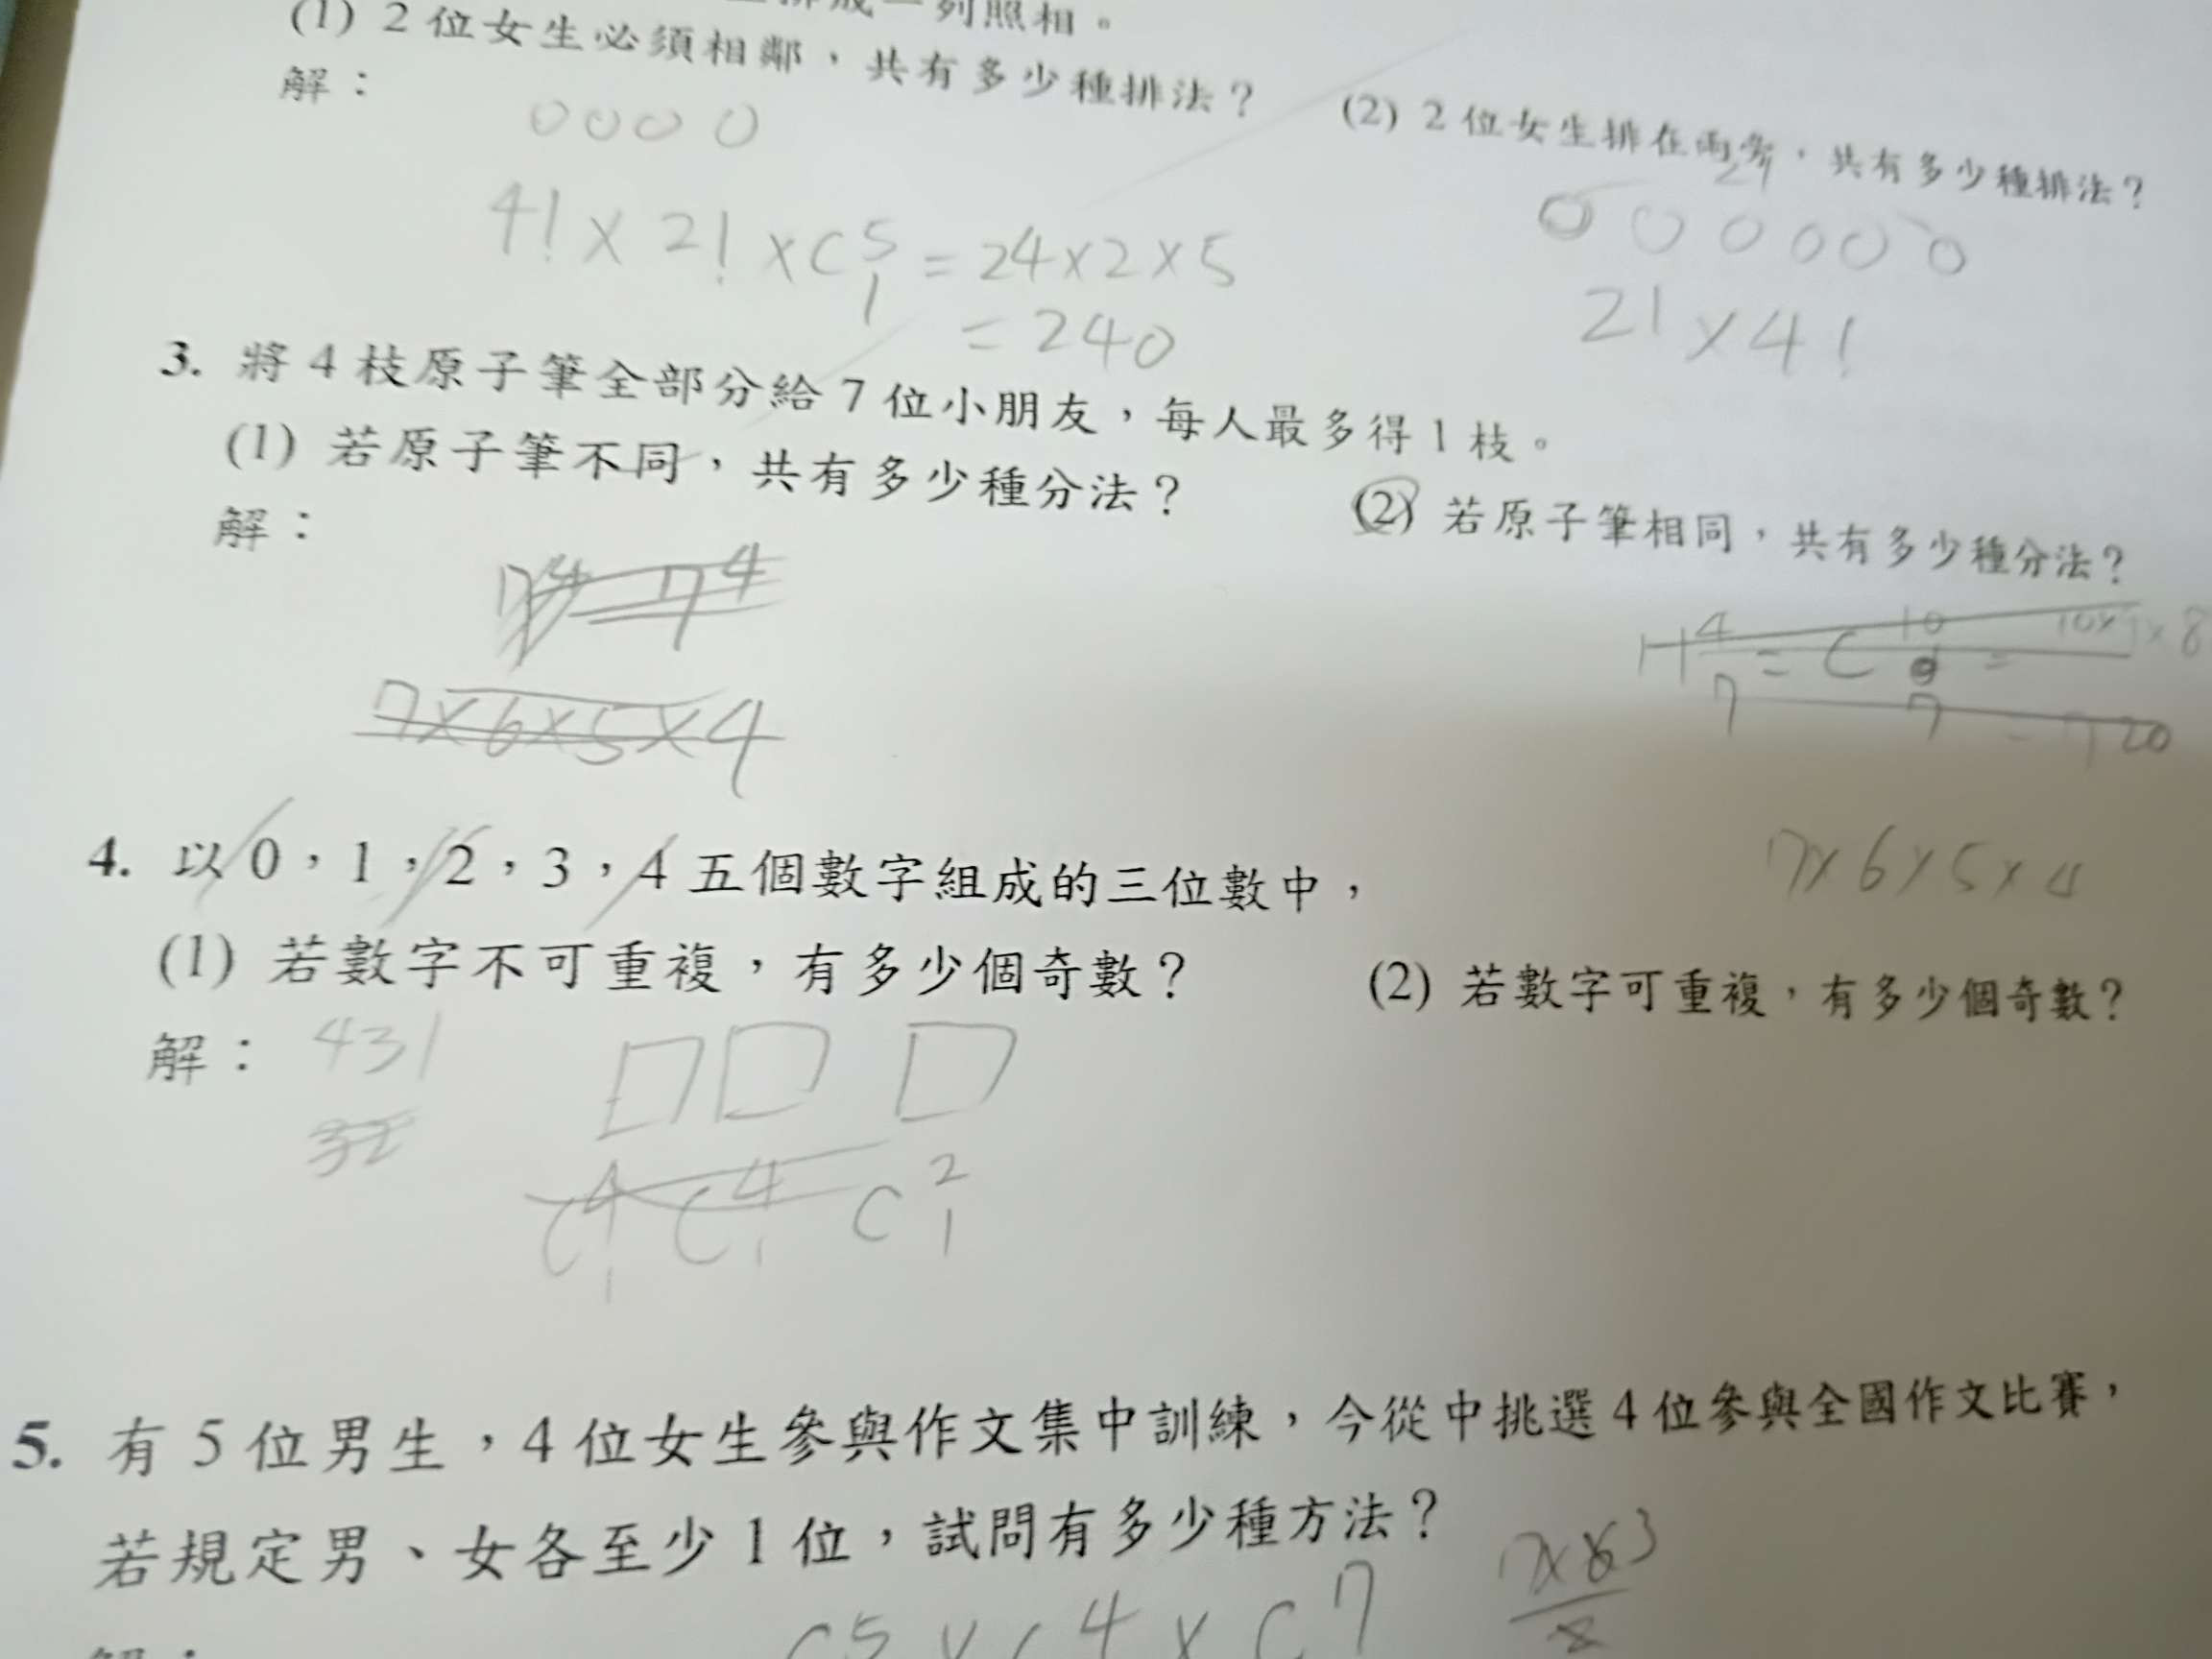 排成一列照相。
(1) 2 位女生必須相鄰，共有多少種排法？
(2) 2 位女生排在兩旁，共有多少種排法？
解：
0 0 0 0
0 0 0 0 0 0
4! × 2! × C 5 1 = 24 × 2 × 5
= 240
2! × 4!
3. 將 4 枝原子筆全部分給 7 位小朋友，每人最多得 1 枝。
(1) 若原子筆不同，共有多少種分法？
(2) 若原子筆相同，共有多少種分法？
解：
7 4
H 4 7 = C 10 7 =
720
7×6×5×4
7×6×5×4
4. 以 0，1，2，3，4 五個數字組成的三位數中，
(1) 若數字不可重複，有多少個奇數？
(2) 若數字可重複，有多少個奇數？
解：
431
C 4 1 C 4 1 C 2 1
5. 有 5 位男生，4 位女生參與作文集中訓練，今從中挑選 4 位參與全國作文比賽，
若規定男、女各至少 1 位，試問有多少種方法？
C 5 × C 4 × C 7